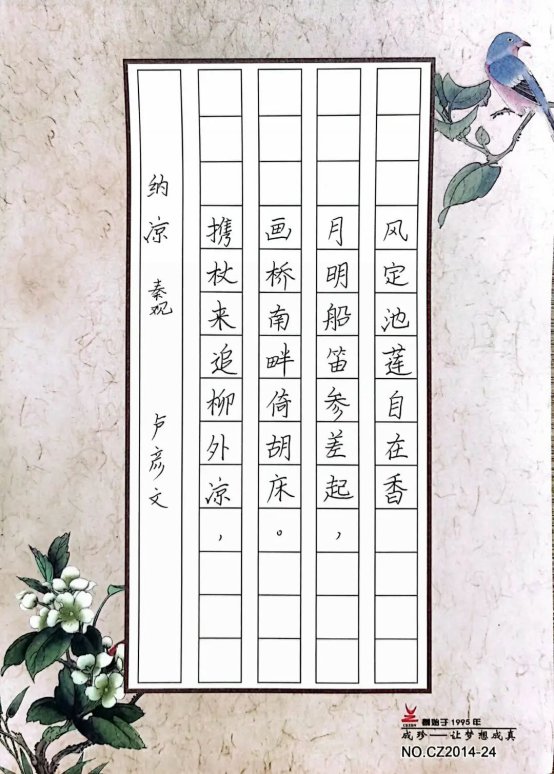 纳凉 秦观 卢彦文
携杖来追柳外凉，
画桥南畔倚胡床。
月明船笛参差起，
风定池莲自在香
創始于1995年
成珍——让梦想成真
NO.CZ2014-24